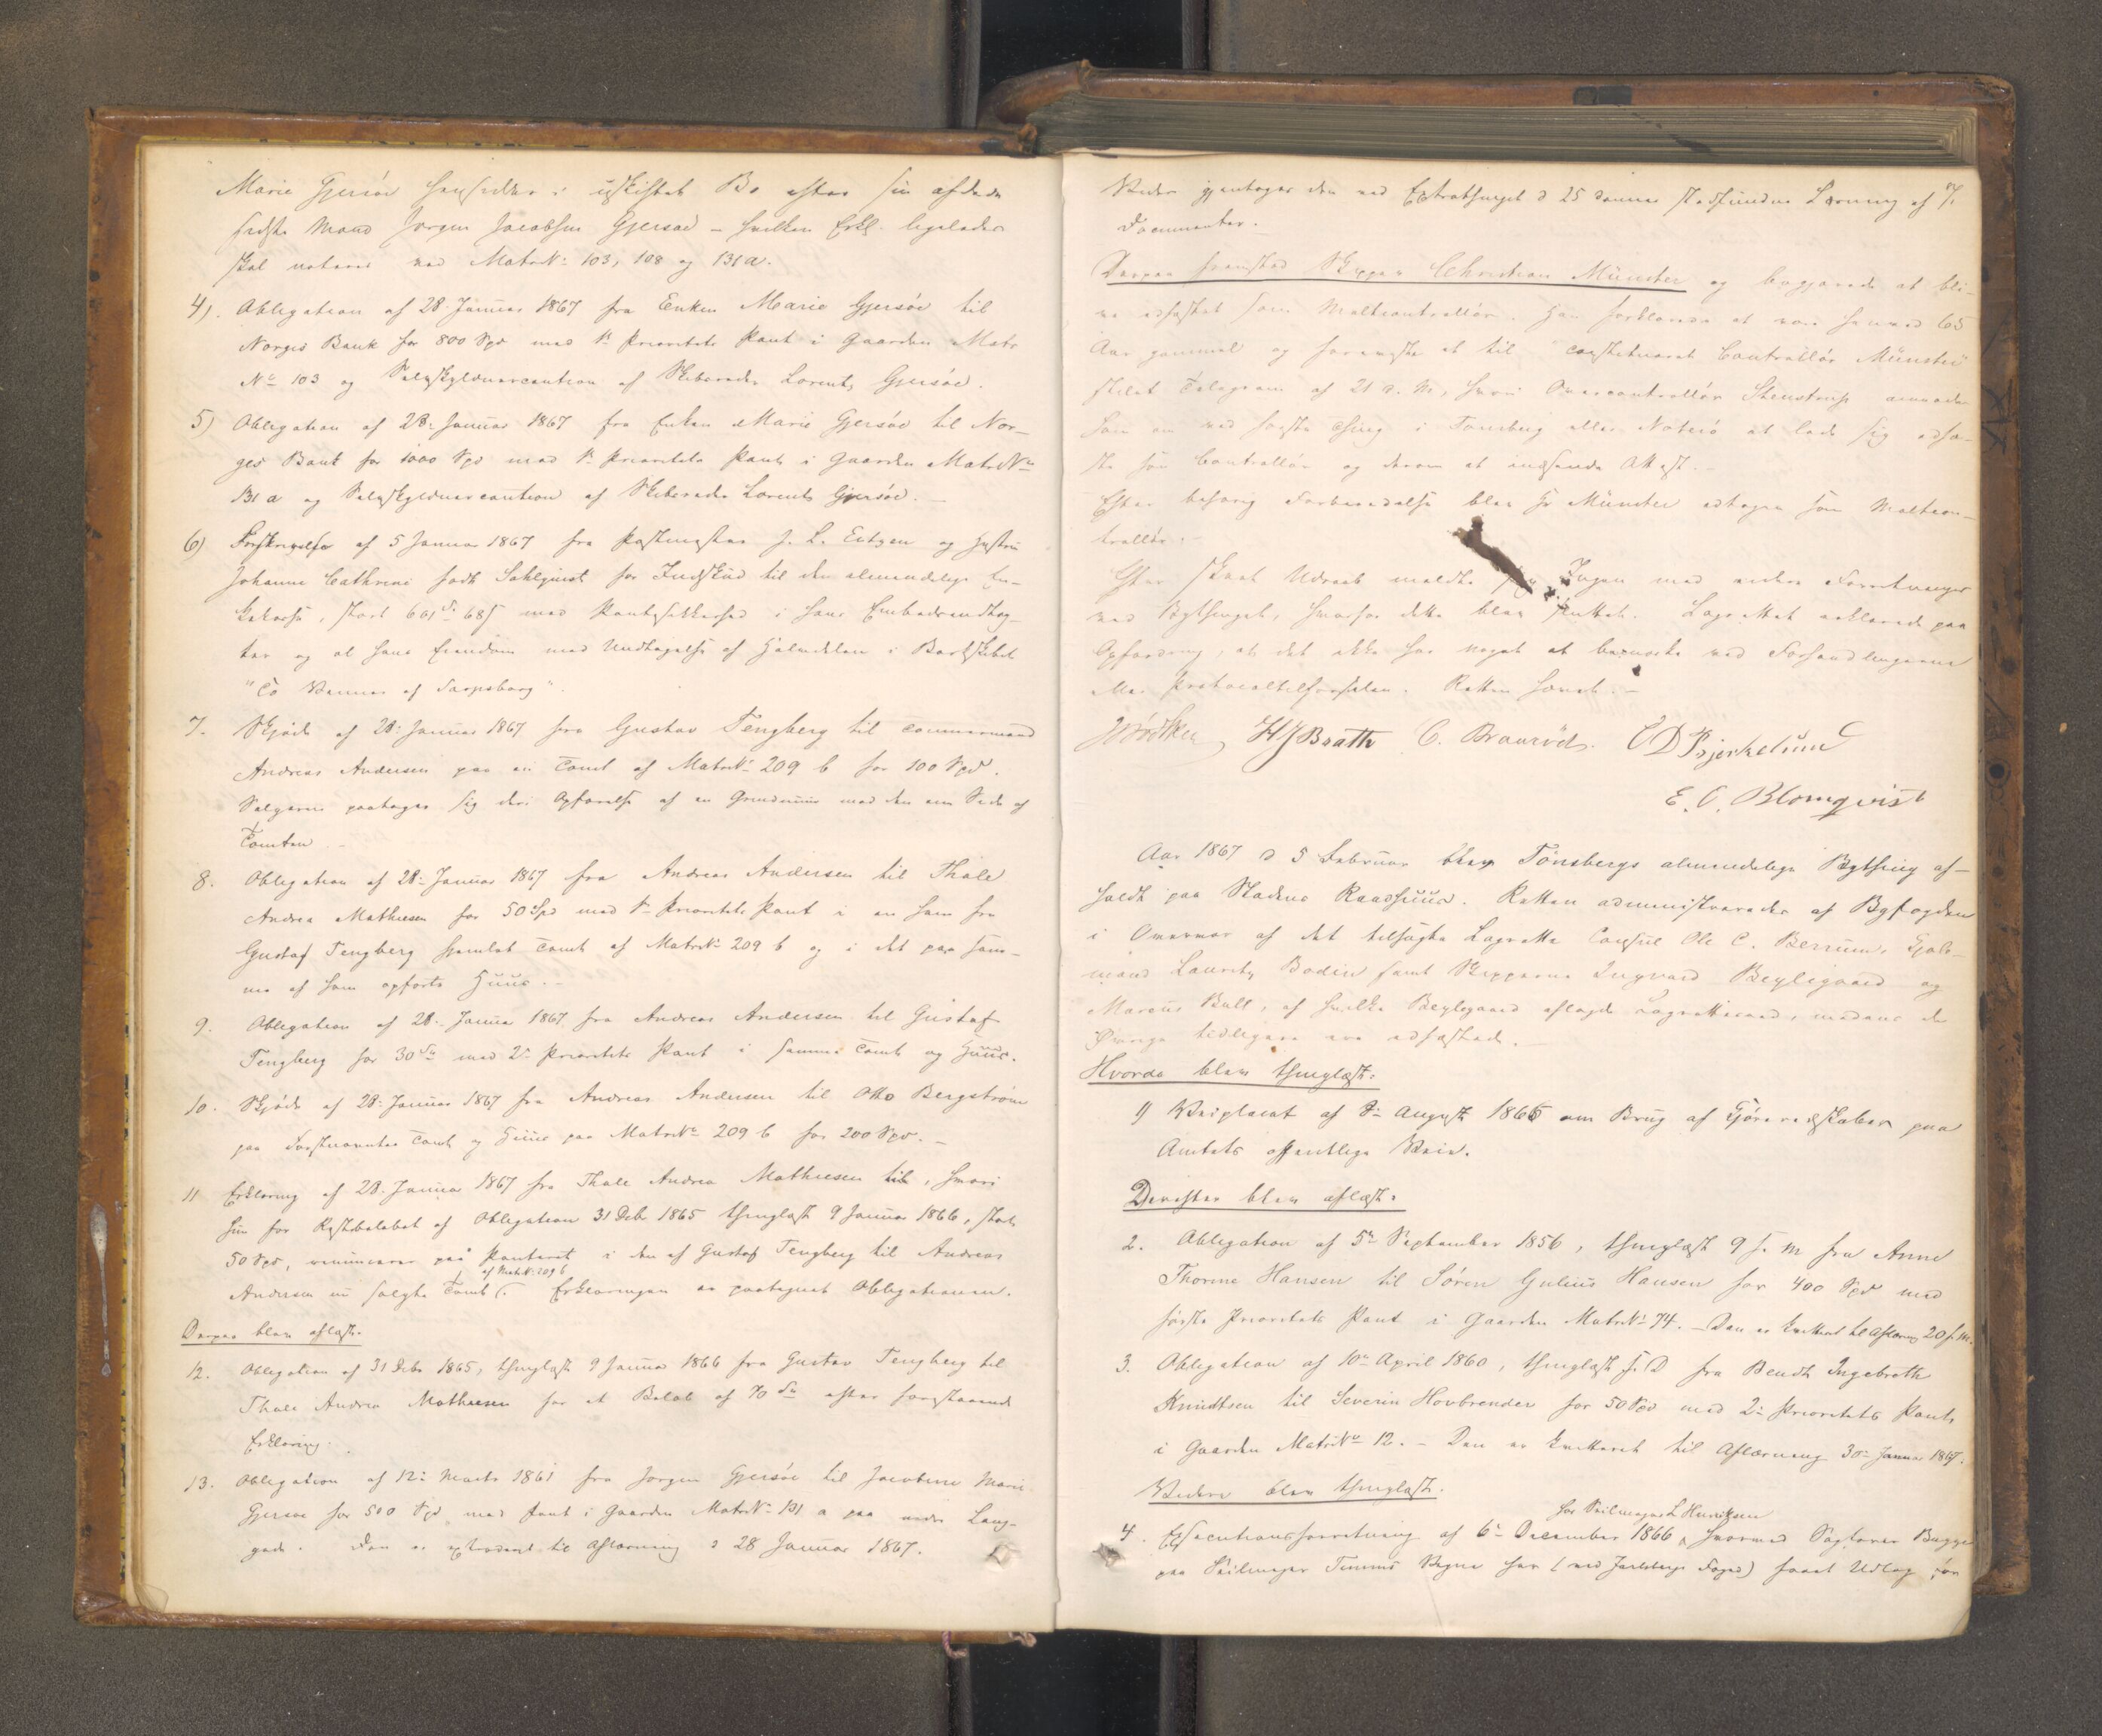 Marie Gjersöe hensidder i uskiftet Bo efter sin afdøde
sidste Mand Jørgen Jacobsen Gjersøe – hvilken Erkl. ligeledes
skal noteres ved MatrN: 103, 108 og 131a.
4). Obligation af 28 Januar 1867 fra Enken Marie Gjersöe til
Norges Bank for 800 Spd med 1ste Prioritets Pant i Gaarden Matr
No 103 og Selvskyldnercaution af Skibsreder Lorents Gjersöe.
5) Obligation af 28: Januar 1867 fra Enken Marie Gjersöe til Nor-
ges Bank for 1000 Spd med 1ste Prioritets Pant i Gaarden MatrNo
131 a og Selvskyldnercaution af Skibsreder Lorents Gjersöe. –
6) Forskrivelse af 5 Januar 1867 fra Postmester J. L. Entzen og Hustru
Johanne Cathrine født Sahlquist for Indskud til den almindelige En-
kekasse, stort 601 68 med Pantesikkerhed i hans Embedsindtæg-
ter og al hans Eiendom med Undtagelse af Halvdelen i Barkskibet
"To Venner af Sarpsborg".
7. Skjøde af 28: Januar 1867 fra Gustav Tengberg til Tømmermand
Andreas Andersen paa en Tomt af MatrN: 209 b for 100 Spd.
Sælgeren paatager sig deri Opførelse af en Grundmuur med den ene Side af
Tomten. –
8. Obligation af 28: Januar 1867 fra Andreas Andersen til Thale
Andrea Mathiesen for 50 Spd med 1ste Prioritets Pant i en ham fra
Gustaf Tengberg hjemlet Tomt af MatrN: 209 b og i det paa sam-
me af ham opførte Huus. –
9. Obligation af 28. Januar 1867 fra Andreas Andersen til Gustaf
Tengberg for 30 med 2: Prioritets Pant i samme Tomt og Huus.
10. Skjøde af 28: Januar 1867 fra Andreas Andersen til Otto Bergström
paa Forstnævnte Tomt og Huus paa MatrNo 209 b for 200 Spd. –
11 Erklæring af 28. Januar 1867 fra Thale Andrea Mathiesen til, hvori
hun for Restbeløbet af Obligation 31 Debr 1865 thinglæst 9 Januar 1866, stor
50 Spd, renuncerer paa Panteret i den af Gustaf Tengberg til Andreas
af MatrN: 209 b
Andersen nu solgte Tomt. Erklæringen er paategnet Obligationen.
Derpaa blev aflæst:
12. Obligation af 31 Debr 1865, thinglæst 9 Januar 1866 fra Gustav Tengberg til
Thale Andrea Mathiesen for et Beløb af 70 efter foranstaaende
Erklæring.
13. Obligation af 12: Marts 1861 fra Jørgen Gjersöe til Jacobine Marie
Gjersøe for 500 Spd med Pant i Gaarden MatrN: 131 a paa nedre Lang-
gade. Den er extraderet til Aflæsning d 28 Januar 1867.
Videre gjentoges den ved Extrathinget d 25 dennes stedfundne Læsning af 7
Documenter. –
Derpaa fremstod Skipper Christian Münster og begjærede at bli-
ve edfæstet som Maltcontrollør. Han forklarede at være henved 65
Aar gammel og foreviste et til constitueret Controllør Münster
stilet Telegram af 21 d. M., hvori Overcontrollør Stenstrup anmoder
ham om ved første Thing i Tønsberg eller Nøterø at lade sig edfæ-
ste som Controllør og derom at indsende Attest.
Efter behørig Forberedelse blev Hr Münster edtagen som Maltcon-
trollør. –
Efter skeet Udraab meldte sig Ingen med andre Forretninger
ved Bythinget, hvorfor dette blev sluttet. Lagrettet erklærede paa
Opfordring, at det ikke har noget at bemærke ved Forhandlingerne
eller Protocoltilførselen. Retten hævet. –
HJBrathe C. Braarud. C D Bjerkelund
E. C. Blomqvist
Aar 1867 d 5 Februar blev Tönsbergs almindelige Bything af-
holdt paa Stadens Raadhuus. Retten administreredes af Byfogden
i Overvær af det tilsagte Lagrette Consul Ole C. Berrum, Handels-
mand Lauritz Bodin samt Skipperne Ingvard Beylegaard og
Marcus Bull, af hvilke Beylegaard aflagde Lagrettesed, medens de
Øvrige tidligere ere edfæstede. –
Hvorda blev thinglæst:
1) Veiplacat af August 1866 om Brug af Kjøreredskaber paa
Amtets offentlige Veie.
Derefter blev aflæst:
2. Obligation af 5te September 1856, thinglæst 9 s. M fra Anne
Thorine Hansen til Sören Gulius Hansen for 400 Spd med
første Prioritets Pant i Gaarden MatrN: 74. – Den er kvitteret til Aflæsn. 20 f. M.
3. Obligation af 10de April 1860, thinglæst s. D fra Bendt Ingebreth
Knudtsen til Severin Hovbrender for 50 Spd med 2: Prioritets Pant
i Gaarden MatrNo 12. – Den er kvitteret til Aflæsning 30: Januar 1867.
Videre blev thinglæst.
for Seilmager L Henriksen
4. Executionsforretning af 6: December 1866, hvorved Sagfører Bugge
paa Seilmager Vegne har (ved Jarlsbergs Foged) faaet Udlæg for